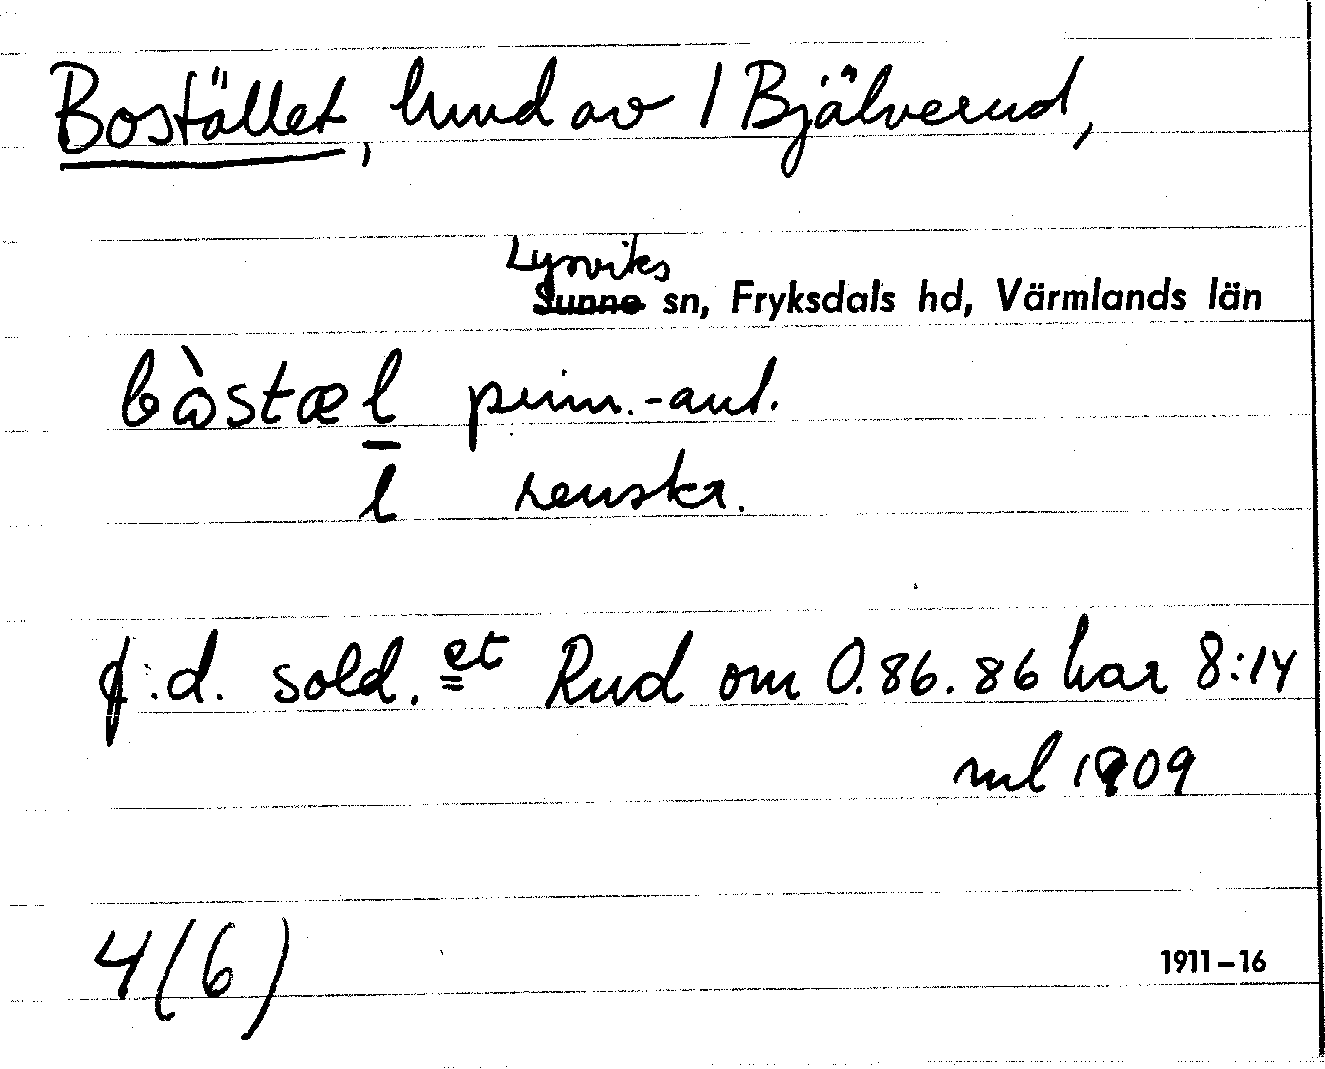 Bostället, lund av 1 Bjälverud,
Lysviks
Sunne sn, Fryksdals hd, Värmlands län
bòstæl prim.-aut.
l renskr.
f.d. sold. et Rud om 0.86.86 har 8:14
ml 1909
4(6)
1911–16